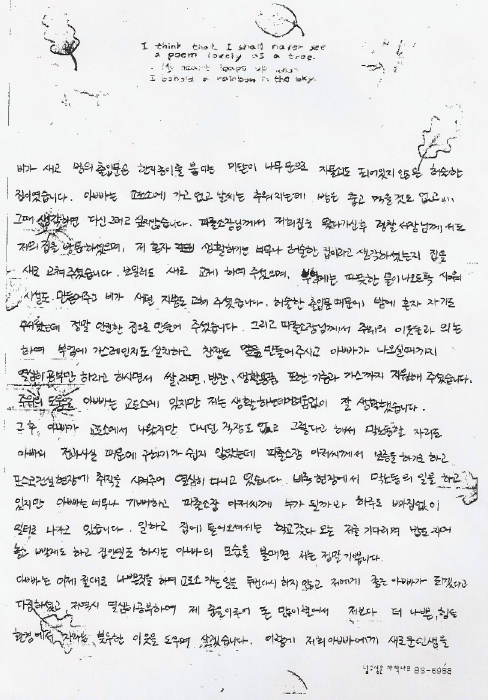 I think that I shall never see
a poem lovely as a tree.
My heart leaps up when
I behold a rainbow in the sky.
비가 새고 방의 출입문은 한지종이를 붙이는 미닫이 나무문으로 자물쇠도 되어있지 않은 허술한
집이였습니다. 아빠는 교도소에 가고 없고 날씨는 추워지는데 방은 춥고 먹을것도 없고...
그때 생각하면 다신 그러고 싶지않습니다. 파출소장님께서 저희집을 왔다가신후 경찰서장님께서도
저의 집을 방문하였으며, 저 혼자 생활하기엔 너무나 허술한 집이라고 생각하셨는지 집을
새로 고쳐 주셨습니다. 보일러도 새로 교체 하여 주셨으며, 부엌에는 따뜻한 물이 나오도록
시설도 만들어주고 비가 새던 지붕도 고쳐 주셨습니다. 허술한 출입문 때문에 밤에 혼자 자기도
무서웠는데 정말 안전한 집으로 만들어 주셨습니다. 그리고 파출소장님께서 주위의 이웃들과 의논
하여 부엌에 가스레인지도 설치하고 찬장도 만들어주시고 아빠가 나오실때까지
열심히 공부만 하라고 하시면서 쌀, 라면, 반찬, 생활용품 또한 기름과 가스까지 지원해 주셨습니다.
주위의 도움으로 아빠는 교도소에 있지만 저는 생활하는데 어려움없이 잘 생활했습니다.
그 후 아빠가 교도소에서 나왔지만 다니던 직장도 없고 그렇다고 해서 막노동할 자리도
아빠의 전과사실 때문에 구하기가 쉽지 않았는데 파출소장 아저씨께서 보증을 하기로 하고
포스코건설현장에 취직을 시켜주어 열심히 다니고 있습니다. 비록 현장에서 막노동의 일을 하고
있지만 아빠는 너무나 기뻐하고 파출소장 아저씨께 누가 될까봐 하루도 빠짐없이
일터로 나가고 있습니다. 일하고 집에 들어오셔서는 학교갔다 오는 저를 기다리며 밥도 지어
놓고 빨래도 하고 집안일도 하시는 아빠의 모습을 볼때면 저는 정말 기쁩니다.
아빠는 이제 절대로 나쁜짓을 하여 교도소 가는 일은 두번다시 하지 않고 저에게 좋은 아빠가 되겠다고
다짐하셨고 저역시 열심히 공부하여 제 꿈을 이루어 돈 많이 벌어서 저보다 더 나쁜, 힘든
환경에서 자라는 불우한 이웃을 도우며 살겠습니다. 이렇게 저희 아빠에게 새로운 인생을
93-6988